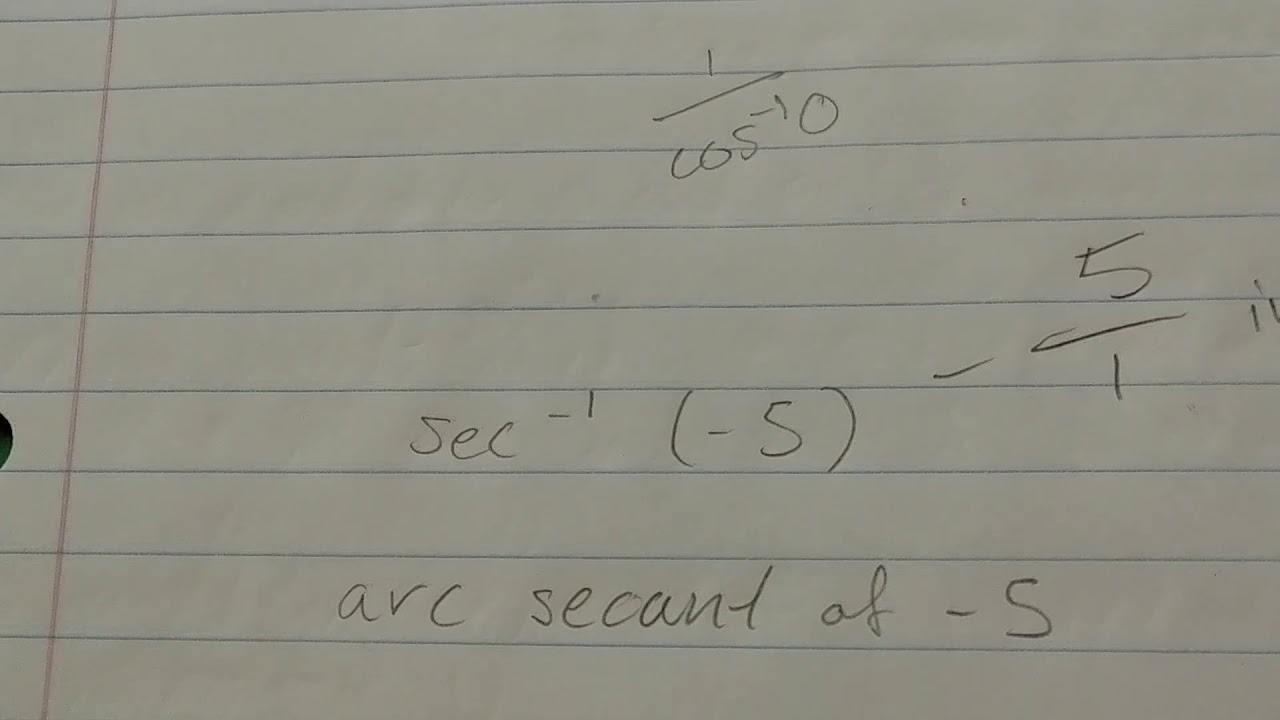 1
cos⁻¹ 0
- 5/1
sec⁻¹ (-5)
arc secant of -5